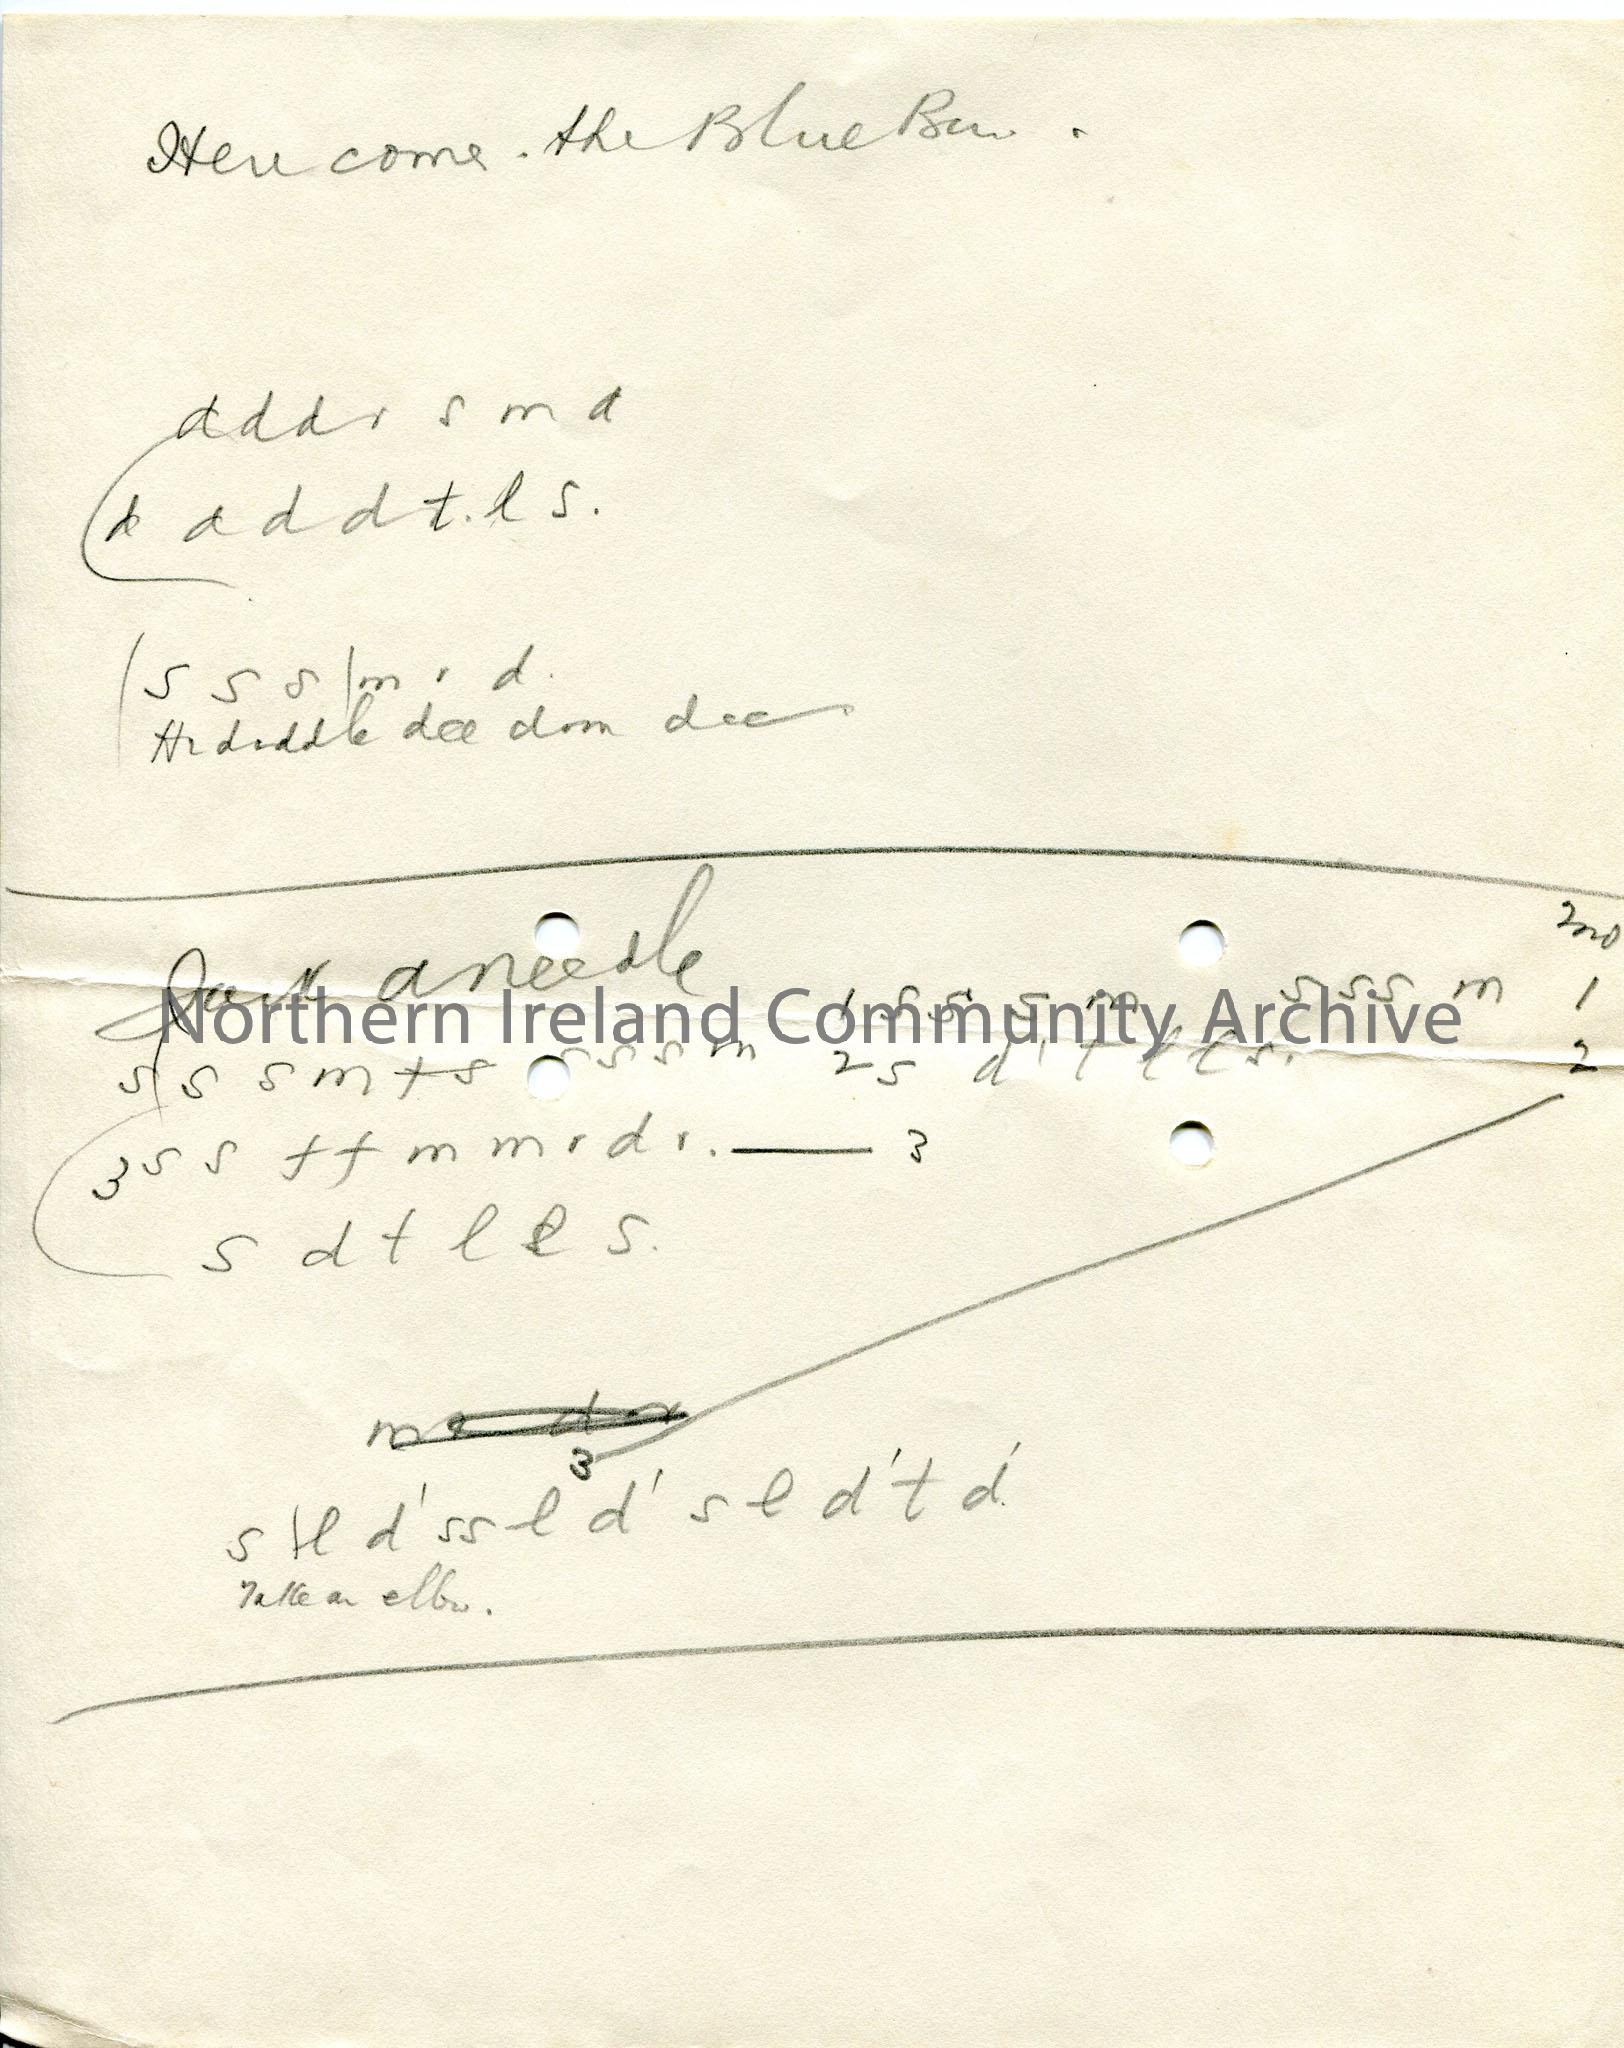 Here comes the Blue
d d d r s m d
d d d d t. l s.
s s s | m r d.
dee dom dee
Jack a needle
2nd
1 s s s m s s s m 1
s s s m f s s s s m 2 s d' t l l s. 2
3 s s f f m m r d r. — 3
s d t l l s.
3
s | l d' s s l d' s l d' t d'
Take an elbow.
Northern Ireland Community Archive